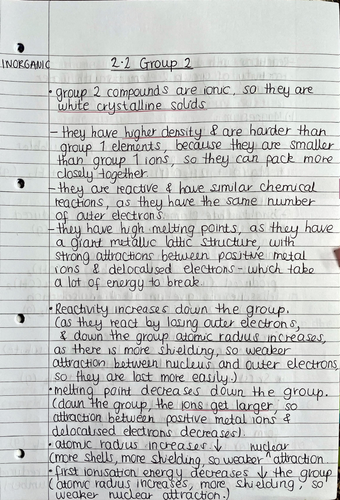 INORGANIC
2.2 Group 2
• group 2 compounds are ionic, so they are
white crystalline solids
- they have higher density & are harder than
group 1 elements, because they are smaller
than group 1 ions, so they can pack more
closely together
- they are reactive & have similar chemical
reactions, as they have the same number
of outer electrons.
- they have high melting points, as they have
a giant metallic lattic structure, with
strong attractions between positive metal
ions & delocalised electrons - which take
a lot of energy to break.
• Reactivity increases down the group.
(as they react by losing outer electrons,
& down the group atomic radius increases,
as there is more shielding, so weaker
attraction between nucleus and outer electrons,
so they are lost more easily.)
• melting point decreases down the group.
(down the group, the ions get larger, so
attraction between positive metal ions &
delocalised electrons decreases)
• atomic radius increases ↓ nuclear
(more shells, more shielding, so weaker ^ attraction
• first ionisation energy decreases ↓ the group
(atomic radius increases, more, shielding, so
weaker nuclear attraction.)